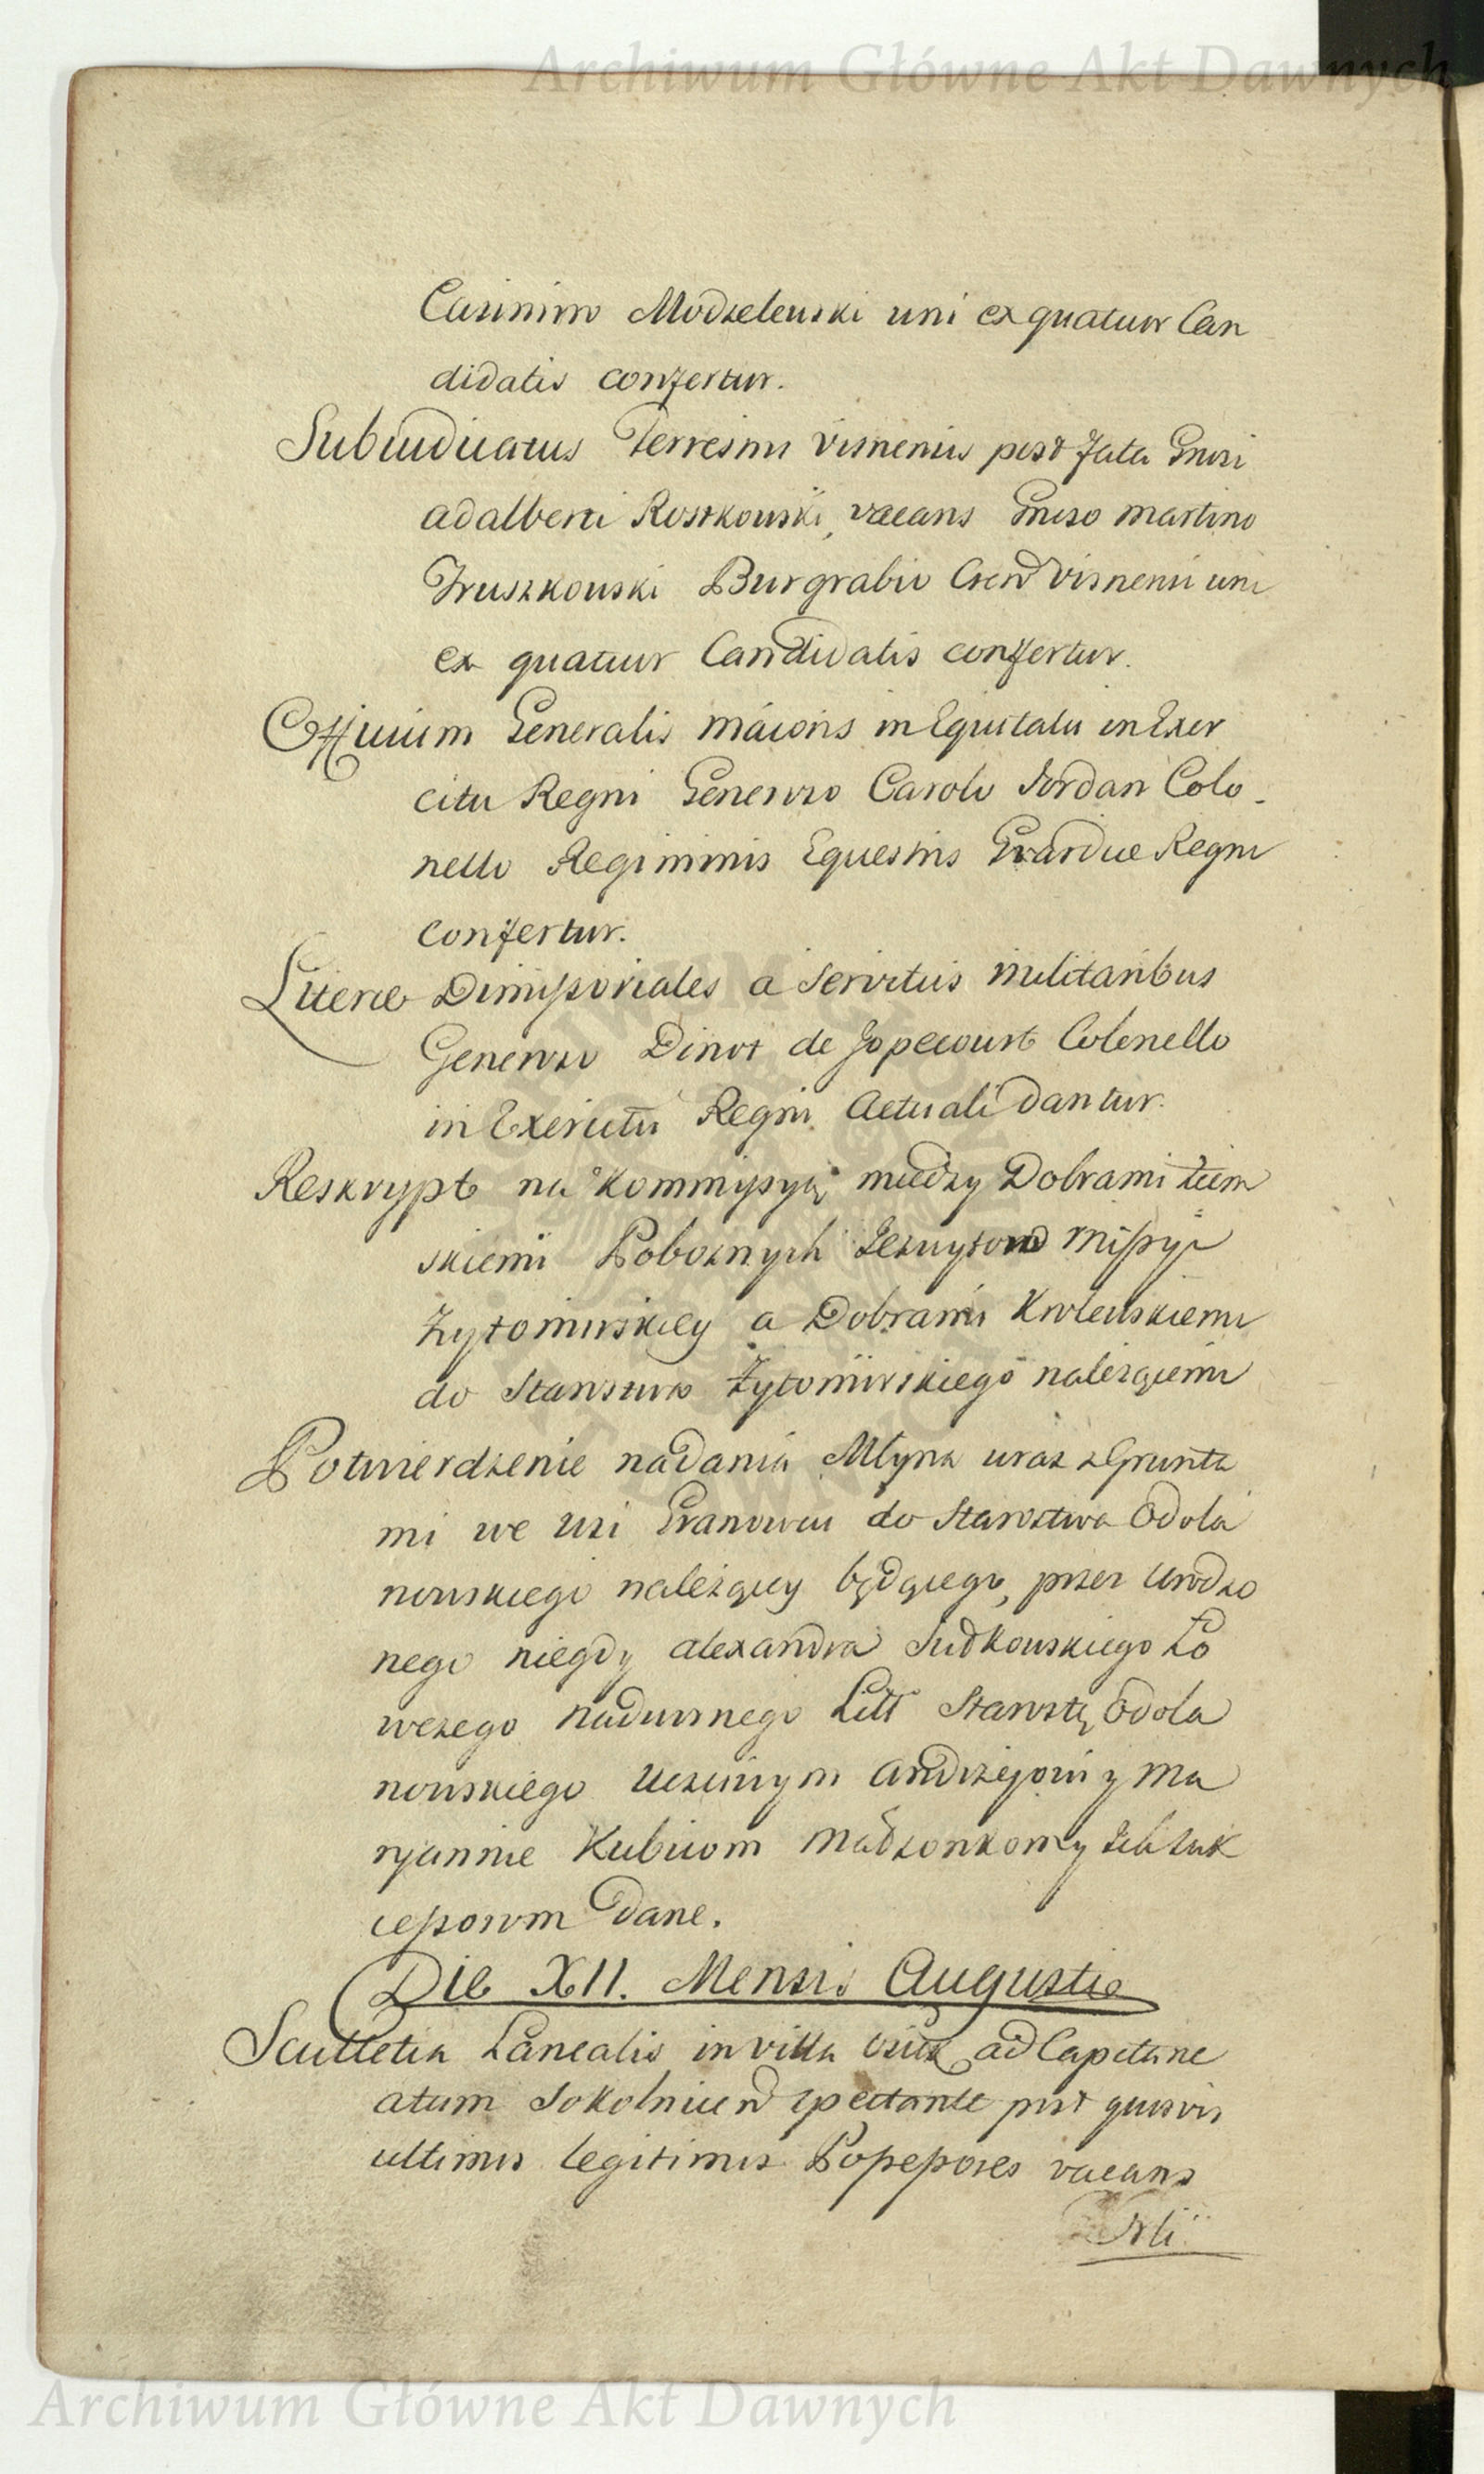 Archiwum Główne Akt Dawnych
Casimiro Modzelewski uni ex quatuor Can
didatis confertur.
Subiudicatus Terrestris Visnensis post fata Gnosi
adalberti Rostkowski, vacans Gnoso Martino
Truszkowski Burgrabio Cren Visnensi uni
ex quatuor Candidatis confertur.
Officium Generalis Maioris in Equitatu in Exer
citu Regni Generoso Carolo Jordan Colo-
nello Regiminis Equestris Gvardiae Regni
confertur.
Literae Dimissoriales a Servitiis militaribus
Generoso Dinot de Jopecourt Colonello
in Exercitu Regni Actuali dantur.
Reskrypt na Kommissyią między Dobrami
skiemi Pobożnych Jezuytow Missyi
Żytomirskiey a Dobrami Krolewskiemi
do Starostwa Żytomirskiego należącemi
Potwierdzenie nadania Młyna wraz z Grunta
mi we wsi Granowcu do Starostwa Odola
nowskiego należącey będącego, przez Urodzo
nego niegdy Alexandra Sułkowskiego Ło
wczego nadwornego Litt Starostę Odola
nowskiego Uczciwym Andrzejowi y Ma
ryannie Kubicom Małżonkom y ich Suk
cessorom Dane.
Die XII. Mensis Augusti
Scultetia Lanealis in villa ad Capitane
atum Sokolnicen spectante post quosvis
ultimos legitimos Possessores vacans